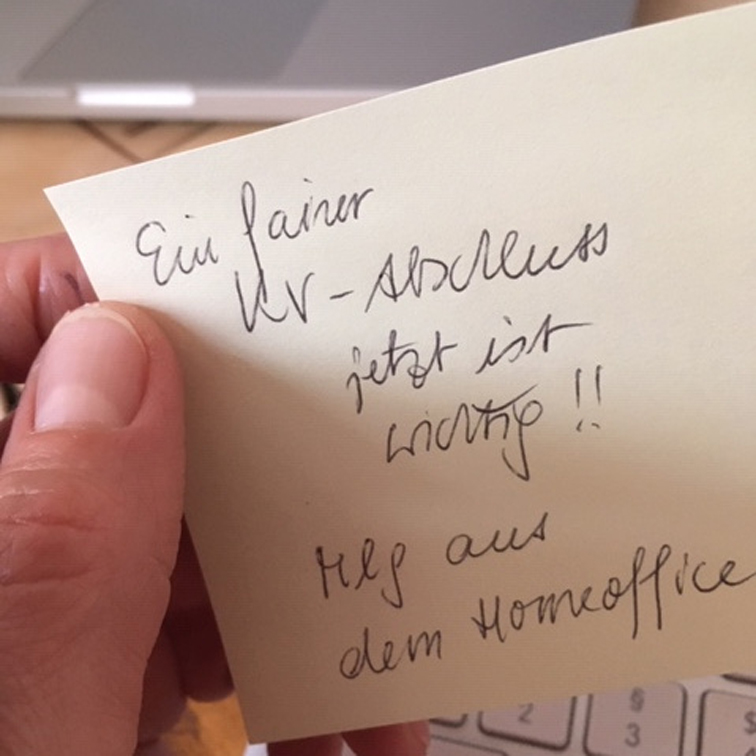 Ein fairer
KV-Abschluss
jetzt ist
wichtig!!
Mlg aus
dem Homeoffice
2
§
3
$